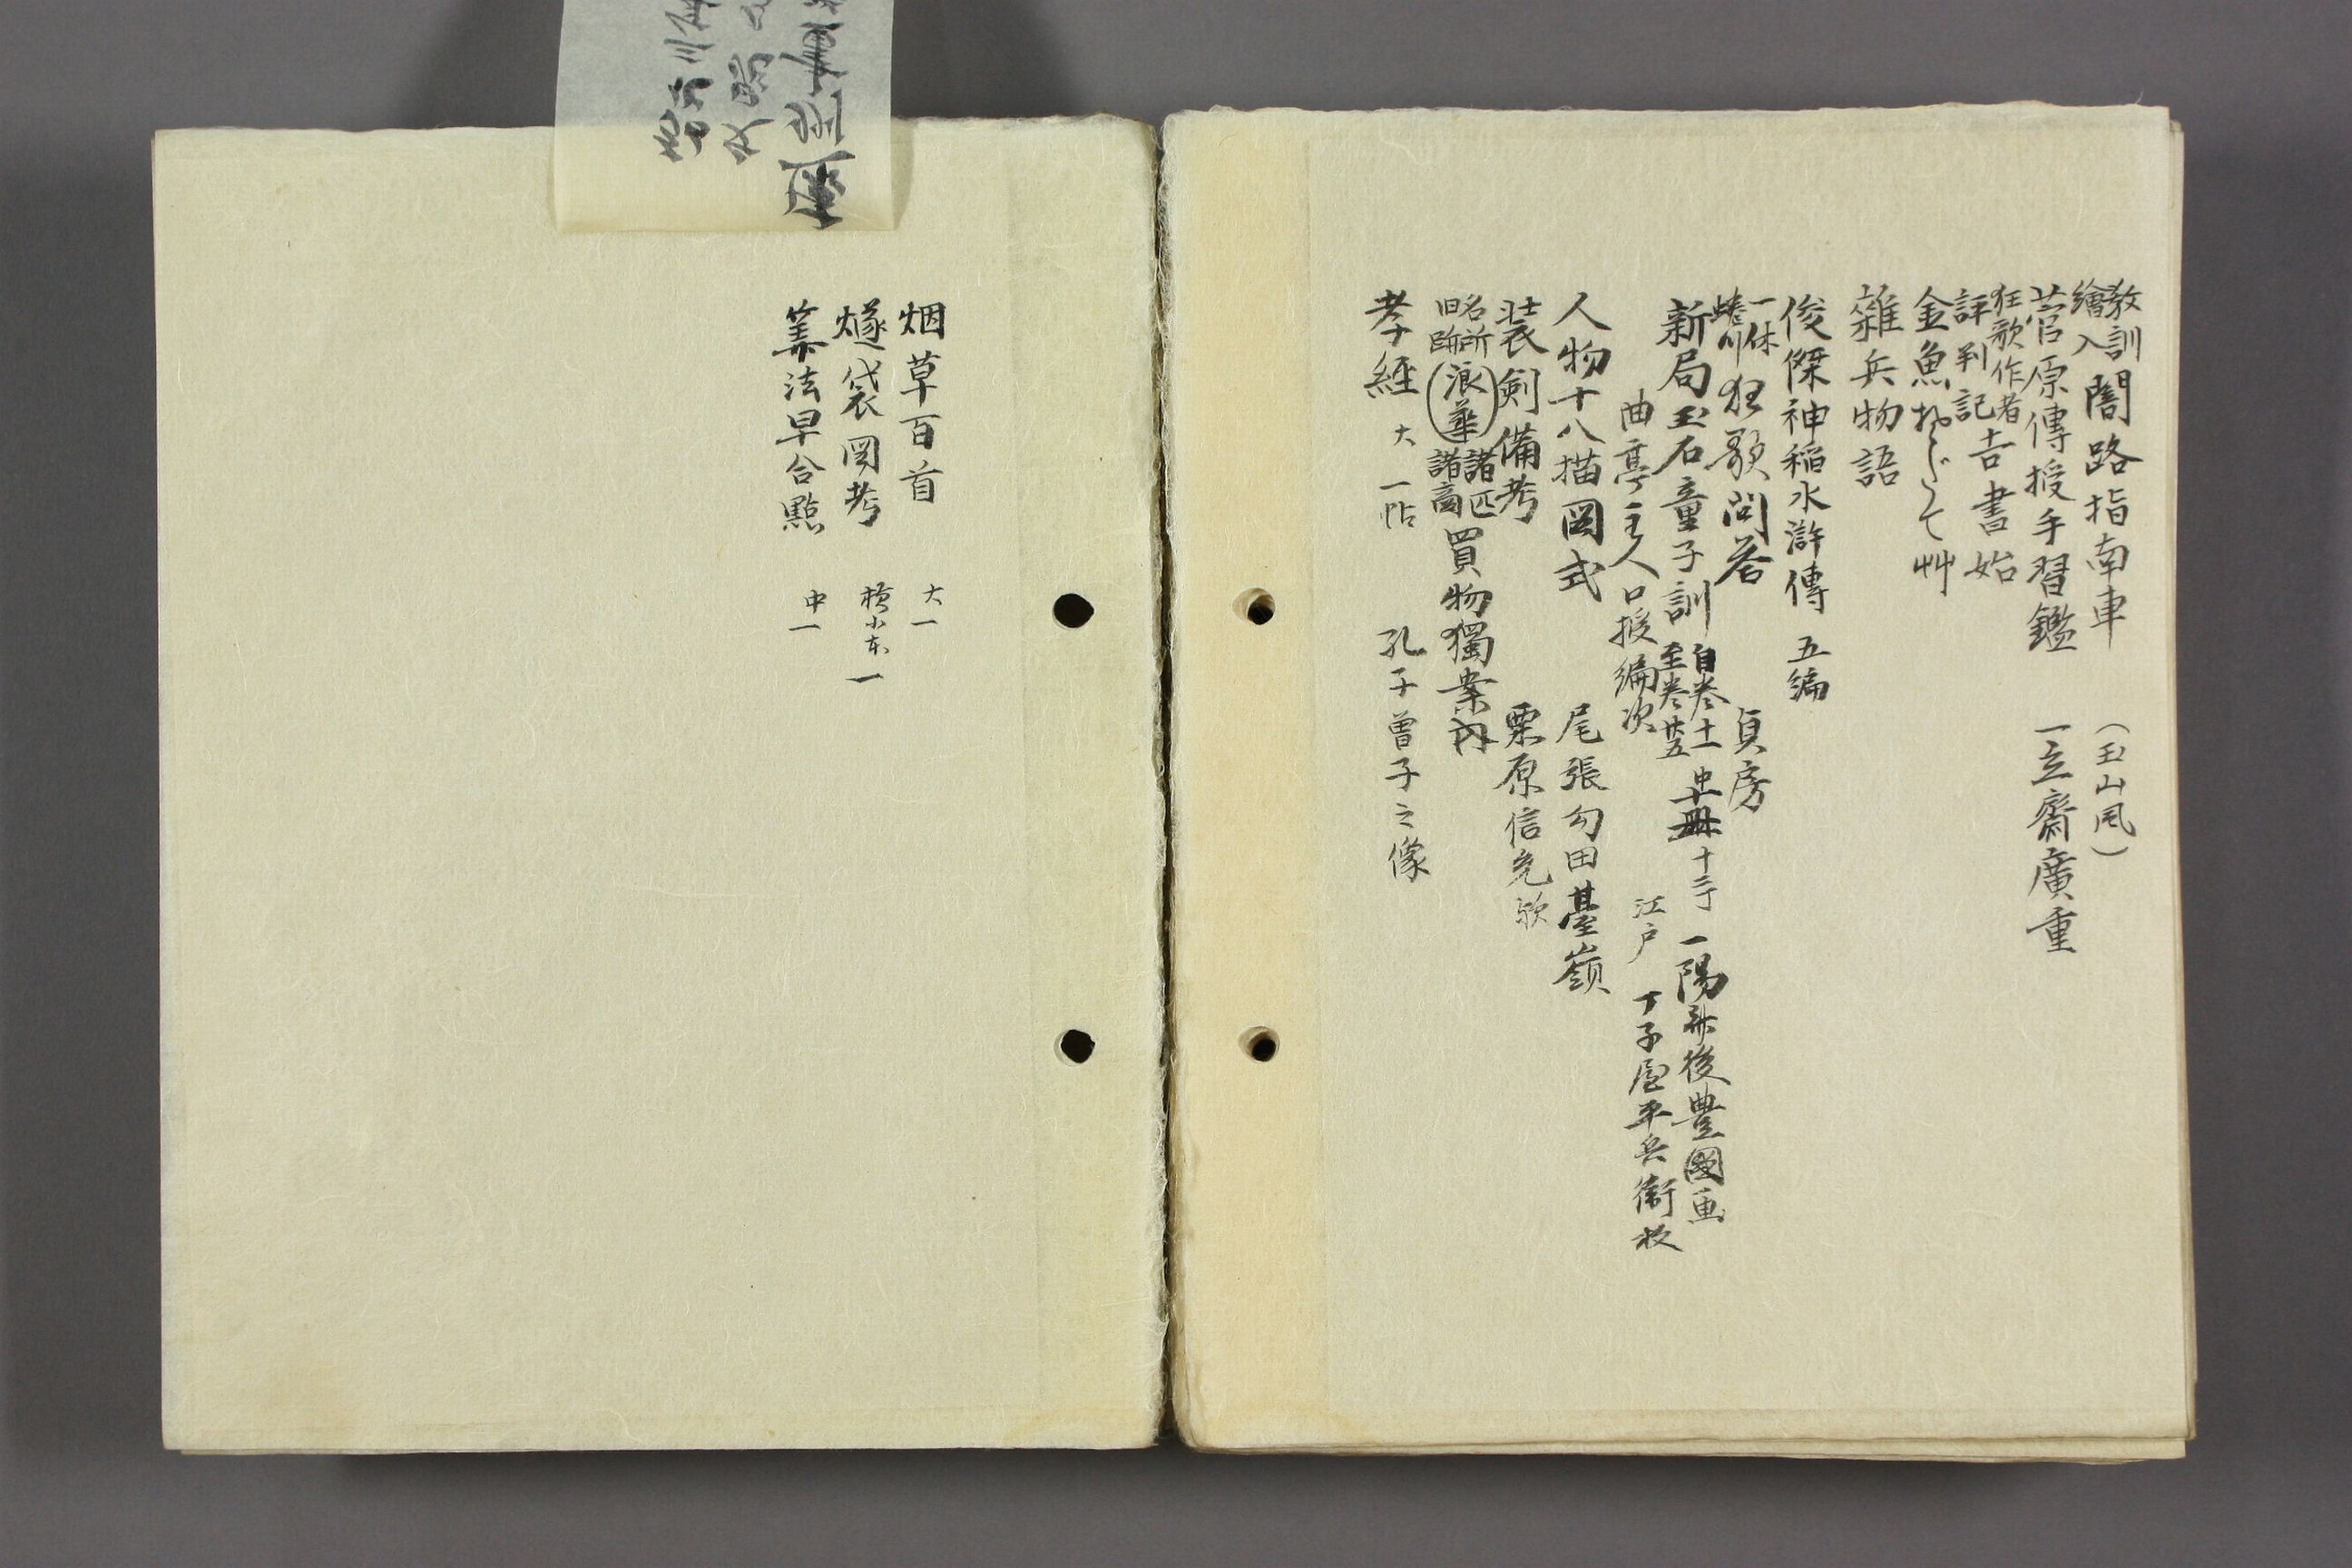 教訓
繪入 闇路指南車 （玉山風）
菅原傳授手習鑑 一立齋廣重
狂歌作者
評判記 吉書始
金魚そだて艸
雜兵物語
俊傑神稲水滸傳 五編
一休
蜷川 狂歌問答 貞房
新局玉石童子訓 自巻十一
至巻廿五 一陽斎後豊國画
曲亭主人口授編次 江戸 丁子屋平兵衛板
人物十八描図式 尾張勾田臺嶺
装剣備考 栗原信充
名所
旧跡 （浪華） 諸匹
諸商 買物獨案内
孝經 大一帖 孔子曽子之像
烟草百首 大一
燧袋図考 横小本一
筭法早合點 中一